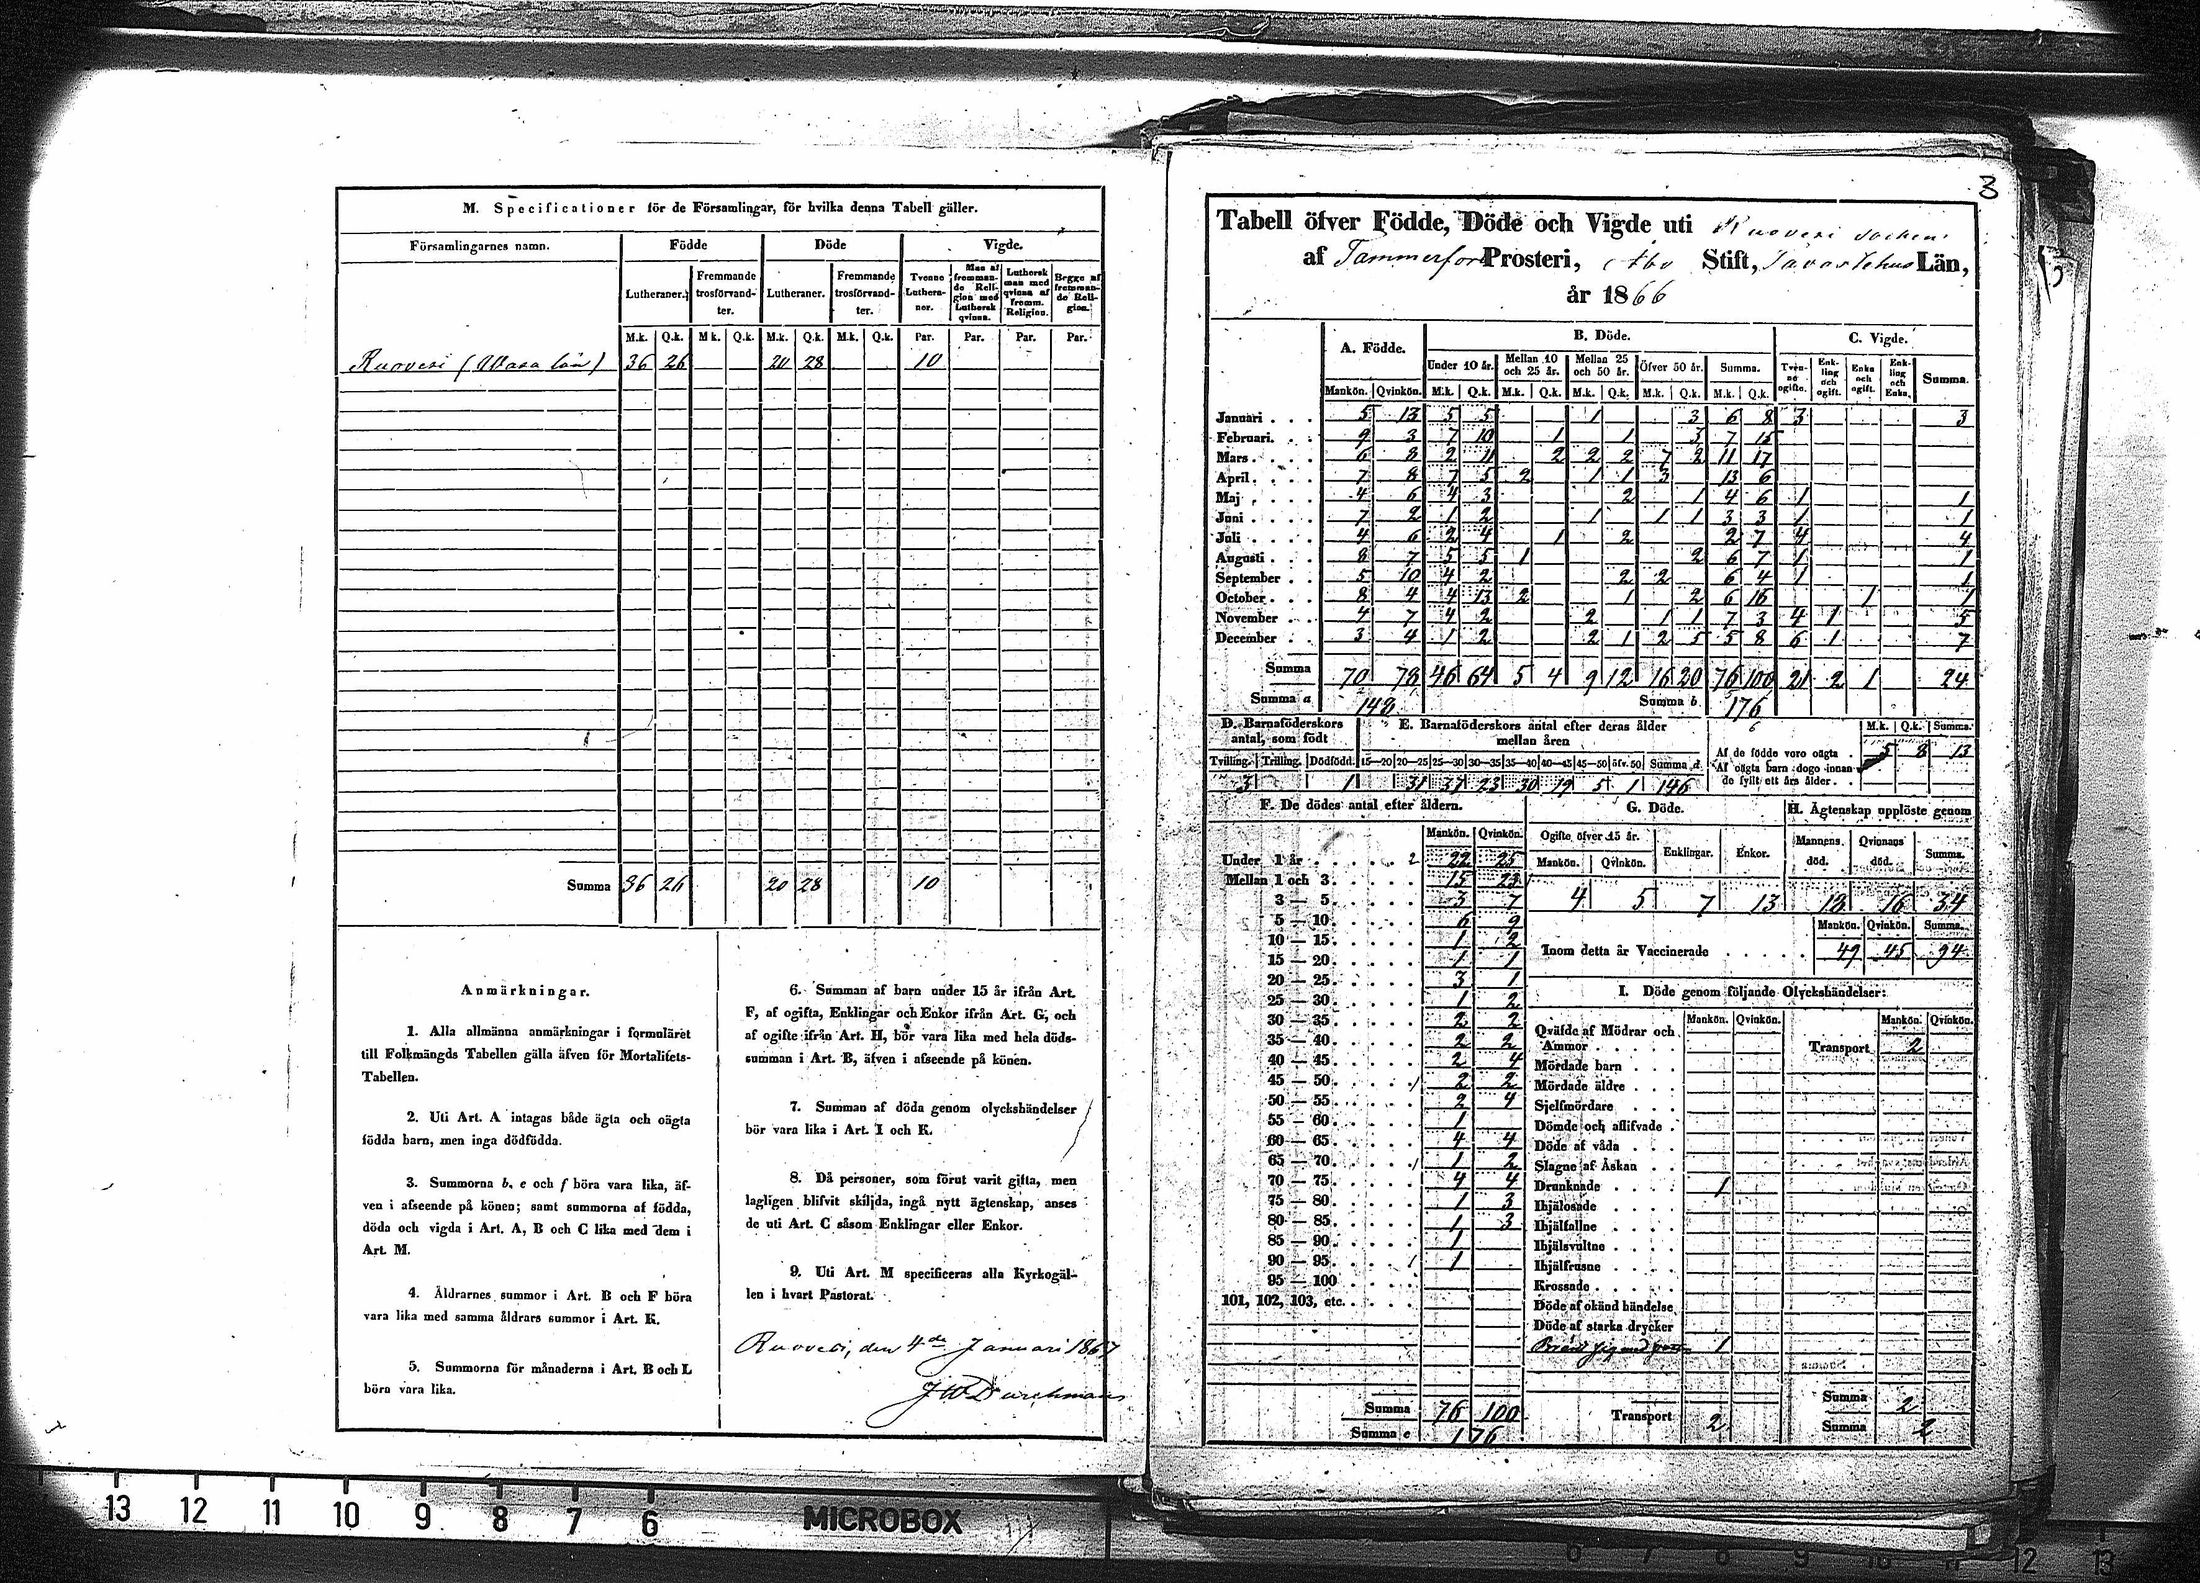 M. Specificationer för de Församlingar, för hvilka denna Tabell gäller.
Församlingarnes namn. Födde Döde Vigde.
Lutheraner. Fremmande trosförvandter. Lutheraner. Fremmande trosförvandter. Tvenne Lutheraner. Man af fremmande Religion med Luthersk qvinna. Luthersk man med qvinna af fremm. Religion. Begge af fremmande Religion.
M.k. Q.k. M.k. Q.k. M.k. Q.k. M.k. Q.k. Par. Par. Par. Par.
Ruovesi (Wasa län) 36 26 20 28 10
Summa 36 26 20 28 10
Anmärkningar.
1. Alla allmänna anmärkningar i formuläret
till Folkmängds Tabellen gälla äfven för Mortalitets-
Tabellen.
2. Uti Art. A intagas både ägta och oägta
födda barn, men inga dödfödda.
3. Summorna b, e och f böra vara lika, äf-
ven i afseende på könen; samt summorna af födda,
döda och vigda i Art. A, B och C lika med dem i
Art. M.
4. Åldrarnes summor i Art. B och F böra
vara lika med samma åldrars summor i Art. K.
5. Summorna för månaderna i Art. B och L
böra vara lika.
6. Summan af barn under 15 år ifrån Art.
F, af ogifta, Enklingar och Enkor ifrån Art. G, och
af ogifte ifrån Art. H, bör vara lika med hela döds-
summan i Art. B, äfven i afseende på könen.
7. Summan af döda genom olyckshändelser
bör vara lika i Art. I och K.
8. Då personer, som förut varit gifta, men
lagligen blifvit skiljda, ingå nytt ägtenskap, anses
de uti Art. C såsom Enklingar eller Enkor.
9. Uti Art. M specificeras alla Kyrkogäl-
len i hvart Pastorat.
Ruovesi, den 4de Januari 1867
8
Tabell öfver Födde, Döde och Vigde uti Ruovesi socken
af Tammerfors Prosteri, Åbo Stift, Tavastehus Län,
år 1866
A. Födde. B. Döde. C. Vigde.
Under 10 år. Mellan 10 och 25 år. Mellan 25 och 50 år. Öfver 50 år. Summa. Tvenne ogifte. Enkling och ogift. Enka och ogift. Enkling och Enka. Summa.
Mankön. Qvinkön. M.k. Q.k. M.k. Q.k. M.k. Q.k. M.k. Q.k. M.k. Q.k.
Januari 5 13 5 5 1 3 6 8 3 3
Februari. 9 3 7 10 1 1 3 7 15
Mars 6 8 2 11 2 2 2 7 2 11 17
April. 7 8 7 5 2 1 1 3 13 6
Maj 4 6 4 3 2 1 4 6 1 1
Juni 7 2 1 2 1 1 1 3 3 1 1
Juli 4 6 2 4 1 2 2 7 4 4
Augusti 8 7 5 5 1 2 6 7 1 1
September 5 10 4 2 2 2 6 4 1 1
October 8 4 4 13 2 1 2 6 16 1 1
November 4 7 4 2 2 1 1 7 3 4 1 5
December 3 4 1 2 2 1 2 5 5 8 6 1 7
Summa 70 78 46 64 5 4 9 12 16 20 76 100 21 2 1 24
Summa a 148 Summa b 176
D. Barnaföderskors antal, som födt
E. Barnaföderskors antal efter deras ålder mellan åren
M.k. Q.k. Summa.
Tvilling. Trilling. Dödfödd. 15—20 20—25 25—30 30—35 35—40 40—45 45—50 öfv. 50 Summa d
3 1 31 37 23 30 19 5 1 146
Af de födde voro oägta 5 8 13
Af oägta barn dogo innan
de fyllt ett års ålder
F. De dödes antal efter åldern.
Mankön. Qvinkön.
Under 1 år 2 22 25
Mellan 1 och 3 15 23
3 — 5 3 7
5 — 10 6 9
10 — 15 1 2
15 — 20 1 1
20 — 25 3 1
25 — 30 1 2
30 — 35 2 2
35 — 40 2 2
40 — 45 2 4
45 — 50 2 2
50 — 55 2 4
55 — 60 1
60 — 65 4 4
65 — 70 1 2
70 — 75 4 4
75 — 80 1 3
80 — 85 1 3
85 — 90 1
90 — 95 1
95 — 100
101, 102, 103, etc.
Summa 76 100
Summa e 176
G. Döde.
Ogifte öfver 15 år. Enklingar. Enkor.
Mankön. Qvinkön.
4 5 7 13
H. Ägtenskap upplöste genom
Mannens död. Qvinnans död. Summa.
18 16 34
Mankön. Qvinkön. Summa.
Inom detta år Vaccinerade 49 45 94
I. Döde genom följande Olyckshändelser:
Mankön. Qvinkön. Mankön. Qvinkön.
Qväfde af Mödrar och
Ammor
Transport 2
Mördade barn
Mördade äldre
Sjelfmördare
Dömde och aflifvade
Döde af våda
Slagne af Åskan
Drunknade 1
Ihjälosade
Ihjälfallne
Ihjälsvultne
Ihjälfrusne
Krossade
Döde af okänd händelse
Döde af starka drycker
1
Transport 2
Summa 2
Summa 2
13 12 11 10 9 8 7 6
MICROBOX
6 7 8 9 10 11 12 13